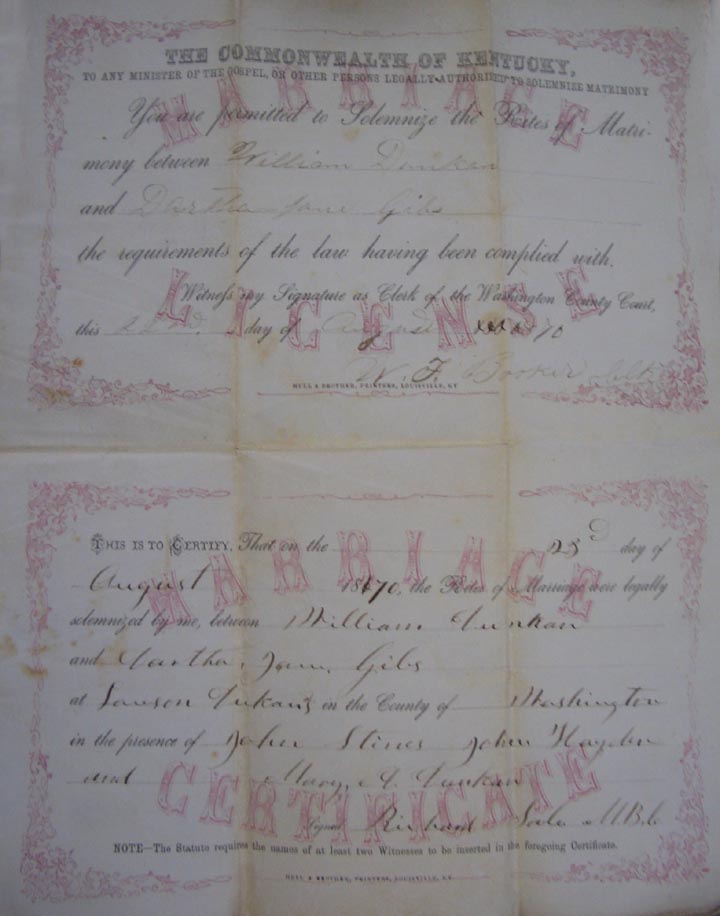 THE COMMONWEALTH OF KENTUCKY,
TO ANY MINISTER OF THE GOSPEL, OR OTHER PERSONS LEGALLY AUTHORIZED TO SOLEMNIZE MATRIMONY
MARRIAGE
You are permitted to Solemnize the Rites of Matri-
mony between William Dunkan
and Dartha Jane Gibs
the requirements of the law having been complied with.
LICENSE
Witness my Signature as Clerk of the Washington County Court,
this 22d. day of August 1870
W. F. Booker Clk
HULL & BROTHER, PRINTERS, LOUISVILLE, KY
THIS IS TO CERTIFY, That on the 23d day of
MARRIAGE
August 1870, the Rites of Marriage were legally
solemnized by me, between William Dunkan
and Dartha Jane Gibs
at Lawson Dukans in the County of Washington
in the presence of John Stines John Hayden
and Mary A Dunkan
CERTIFICATE
Signed Richard
NOTE—The Statute requires the names of at least two Witnesses to be inserted in the foregoing Certificate.
HULL & BROTHER, PRINTERS, LOUISVILLE, KY.